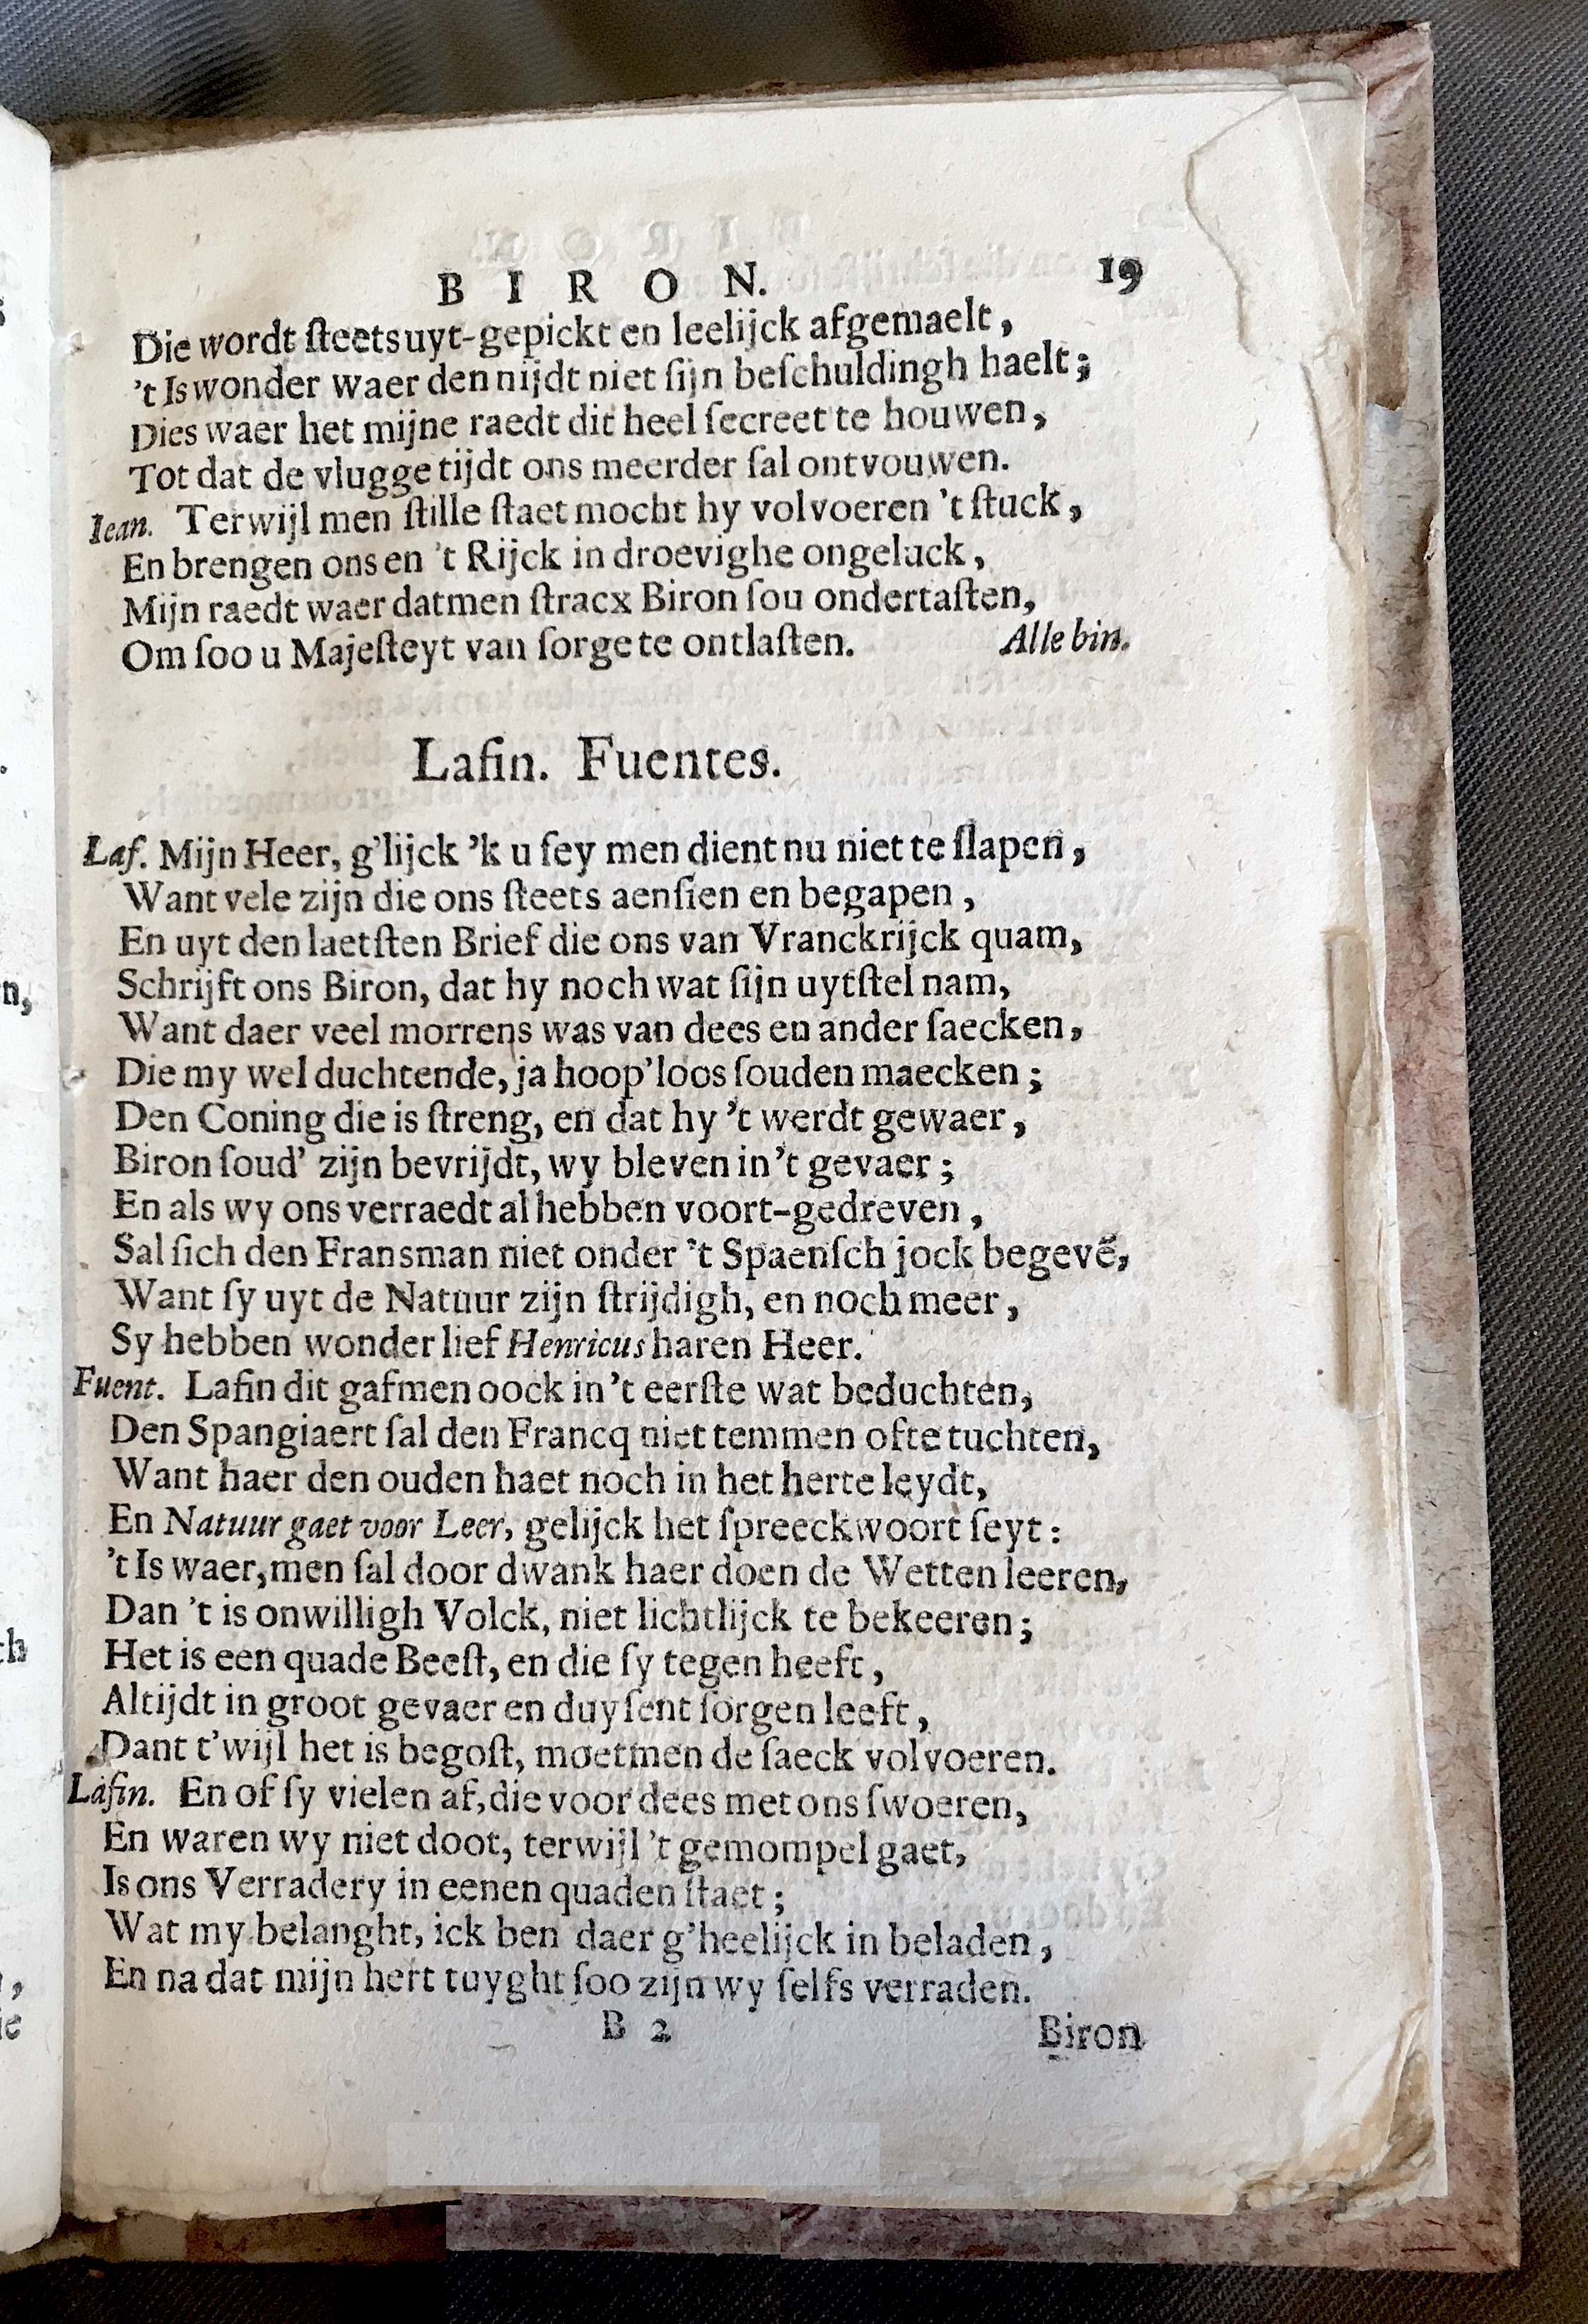 B I R O N. 19
Die wordt ſteets uyt-gepickt en leelijck afgemaelt,
't Is wonder waer den nijdt niet ſijn beſchuldingh haelt;
Dies waer het mijne raedt dit heel ſecreet te houwen,
Tot dat de vlugge tijdt ons meerder ſal ontvouwen.
Iean. Terwijl men ſtille ſtaet mocht hy volvoeren 't ſtuck,
En brengen ons en 't Rijck in droevighe ongeluck,
Mijn raedt waer datmen ſtracx Biron ſou ondertaſten,
Om ſoo u Majeſteyt van ſorge te ontlaſten. Alle bin.
Laſin. Fuentes.
Laſ. Mijn Heer, g'lijck 'k u ſey men dient nu niet te ſlapen,
Want vele zijn die ons ſteets aenſien en begapen,
En uyt den laetſten Brief die ons van Vranckrijck quam,
Schrijft ons Biron, dat hy noch wat ſijn uytſtel nam,
Want daer veel morrens was van dees en ander ſaecken,
Die my wel duchtende, ja hoop'loos ſouden maecken;
Den Coning die is ſtreng, en dat hy 't werdt gewaer,
Biron ſoud' zijn bevrijdt, wy bleven in 't gevaer;
En als wy ons verraedt al hebben voort-gedreven,
Sal ſich den Fransman niet onder 't Spaenſch jock begevẽ,
Want ſy uyt de Natuur zijn ſtrijdigh, en noch meer,
Sy hebben wonder lief Henricus haren Heer.
Fuent. Laſin dit gafmen oock in 't eerſte wat beduchten,
Den Spangiaert ſal den Francq niet temmen ofte tuchten,
Want haer den ouden haet noch in het herte leydt,
En Natuur gaet voor Leer, gelijck het ſpreeckwoort ſeyt:
't Is waer, men ſal door dwank haer doen de Wetten leeren,
Dan 't is onwilligh Volck, niet lichtlijck te bekeeren;
Het is een quade Beeſt, en die ſy tegen heeft,
Altijdt in groot gevaer en duyſent ſorgen leeft,
Dant t'wijl het is begoſt, moetmen de ſaeck volvoeren.
Laſin. En of ſy vielen af, die voor dees met ons ſwoeren,
En waren wy niet doot, terwijl 't gemompel gaet,
Is ons Verradery in eenen quaden ſtaet;
Wat my belanght, ick ben daer g'heelijck in beladen,
En na dat mijn hert tuyght ſoo zijn wy ſelfs verraden.
B 2 Biron